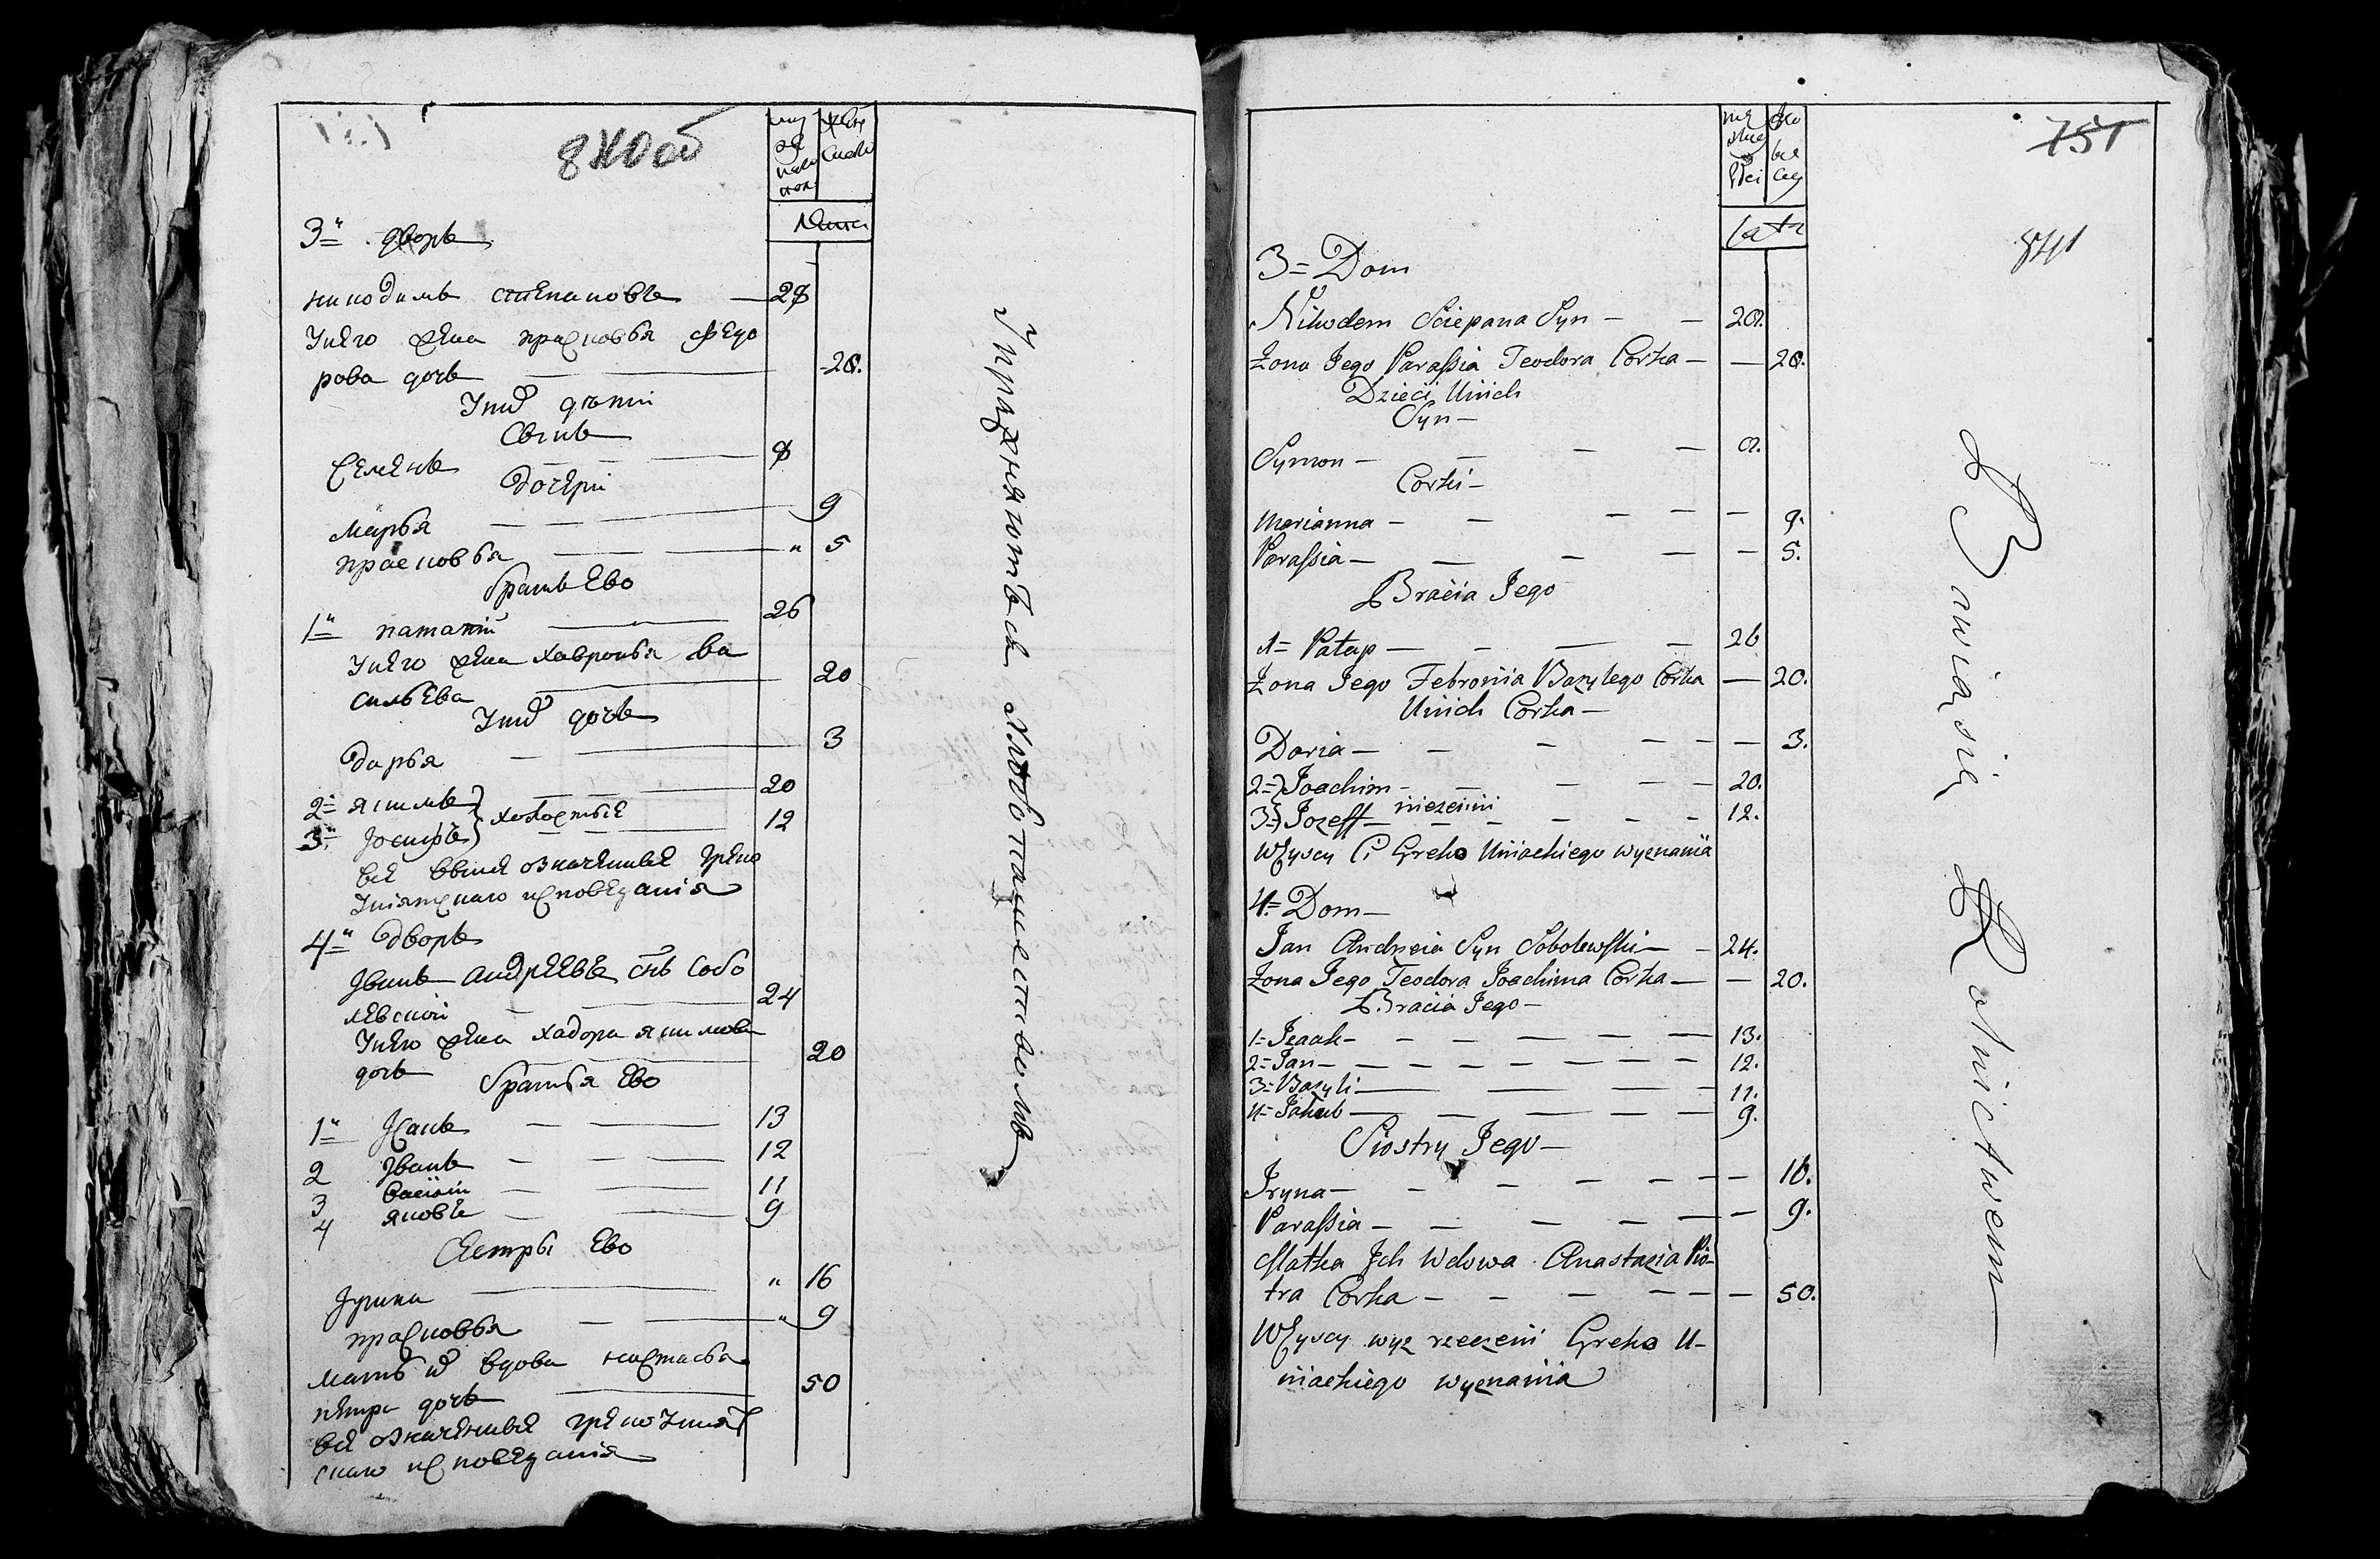 840 об
муж
ска
Лета
3й дворъ
никодимъ степановъ — 28
Унего жена прасковья федо
рова дочь — 28.
Уних дѣти
Сынъ
Семенъ — 8
дочери
Марья — 9
прасковья — " 5
братья Ево
1й патапий — 26
Унего жена хавронья ва
сильева — 20
Уних дочь
дарья — 3
2й якимъ — 20
3й Іосифъ } холостые — 12
всѣ выше означенные греко
Униятскаго исповеданія
4й дворъ
Іванъ андреевъ снъ Собо
левский — 24
Унего жена хадора якимова
дочь — 20
братья Ево
1й Ісакъ — 13
2 Іванъ — 12
3 василий — 11
4 яковъ — 9
Сестры Ево
Ірина — " 16
прасковья — " 9
мать их вдова настасья
петра дочь — 50
всѣ означенные греко Уният
скаго исповеданія
Упражняются хлебопашествомъ
751
841
Lata
3= Dom
Nikodem Sciepana Syn — 28.
Zona Jego Parassia Teodora Corka — 28.
Dzieci Unich
Syn —
Symon — 8.
Corki —
Marianna — 9.
Parassia — 5.
Bracia Jego
1= Patap — 26
Zona Jego Febronia Bazylego Corka — 20.
Unich Corka —
Daria — 3.
2=} Joachim — 20.
3=} Jozeff — niezenni — 12.
Wszyscy Ci Greko Uniackiego wyznania
4= Dom —
Jan Andrzeia Syn Sobolewski — 24.
Zona Jego Teodora Joachima Corka — 20.
Bracia Jego —
1= Isaak — 13.
2= Jan — 12.
3= Bazyli — 11.
4= Jakub — 9.
Siostry Jego —
Iryna — 16.
Parassia — 9.
Matka Ich Wdowa Anastazia Pio-
tra Corka — 50.
Wszyscy wyz rzeczeni Greko U-
niackiego wyznania
Bawią się Rolnictwem